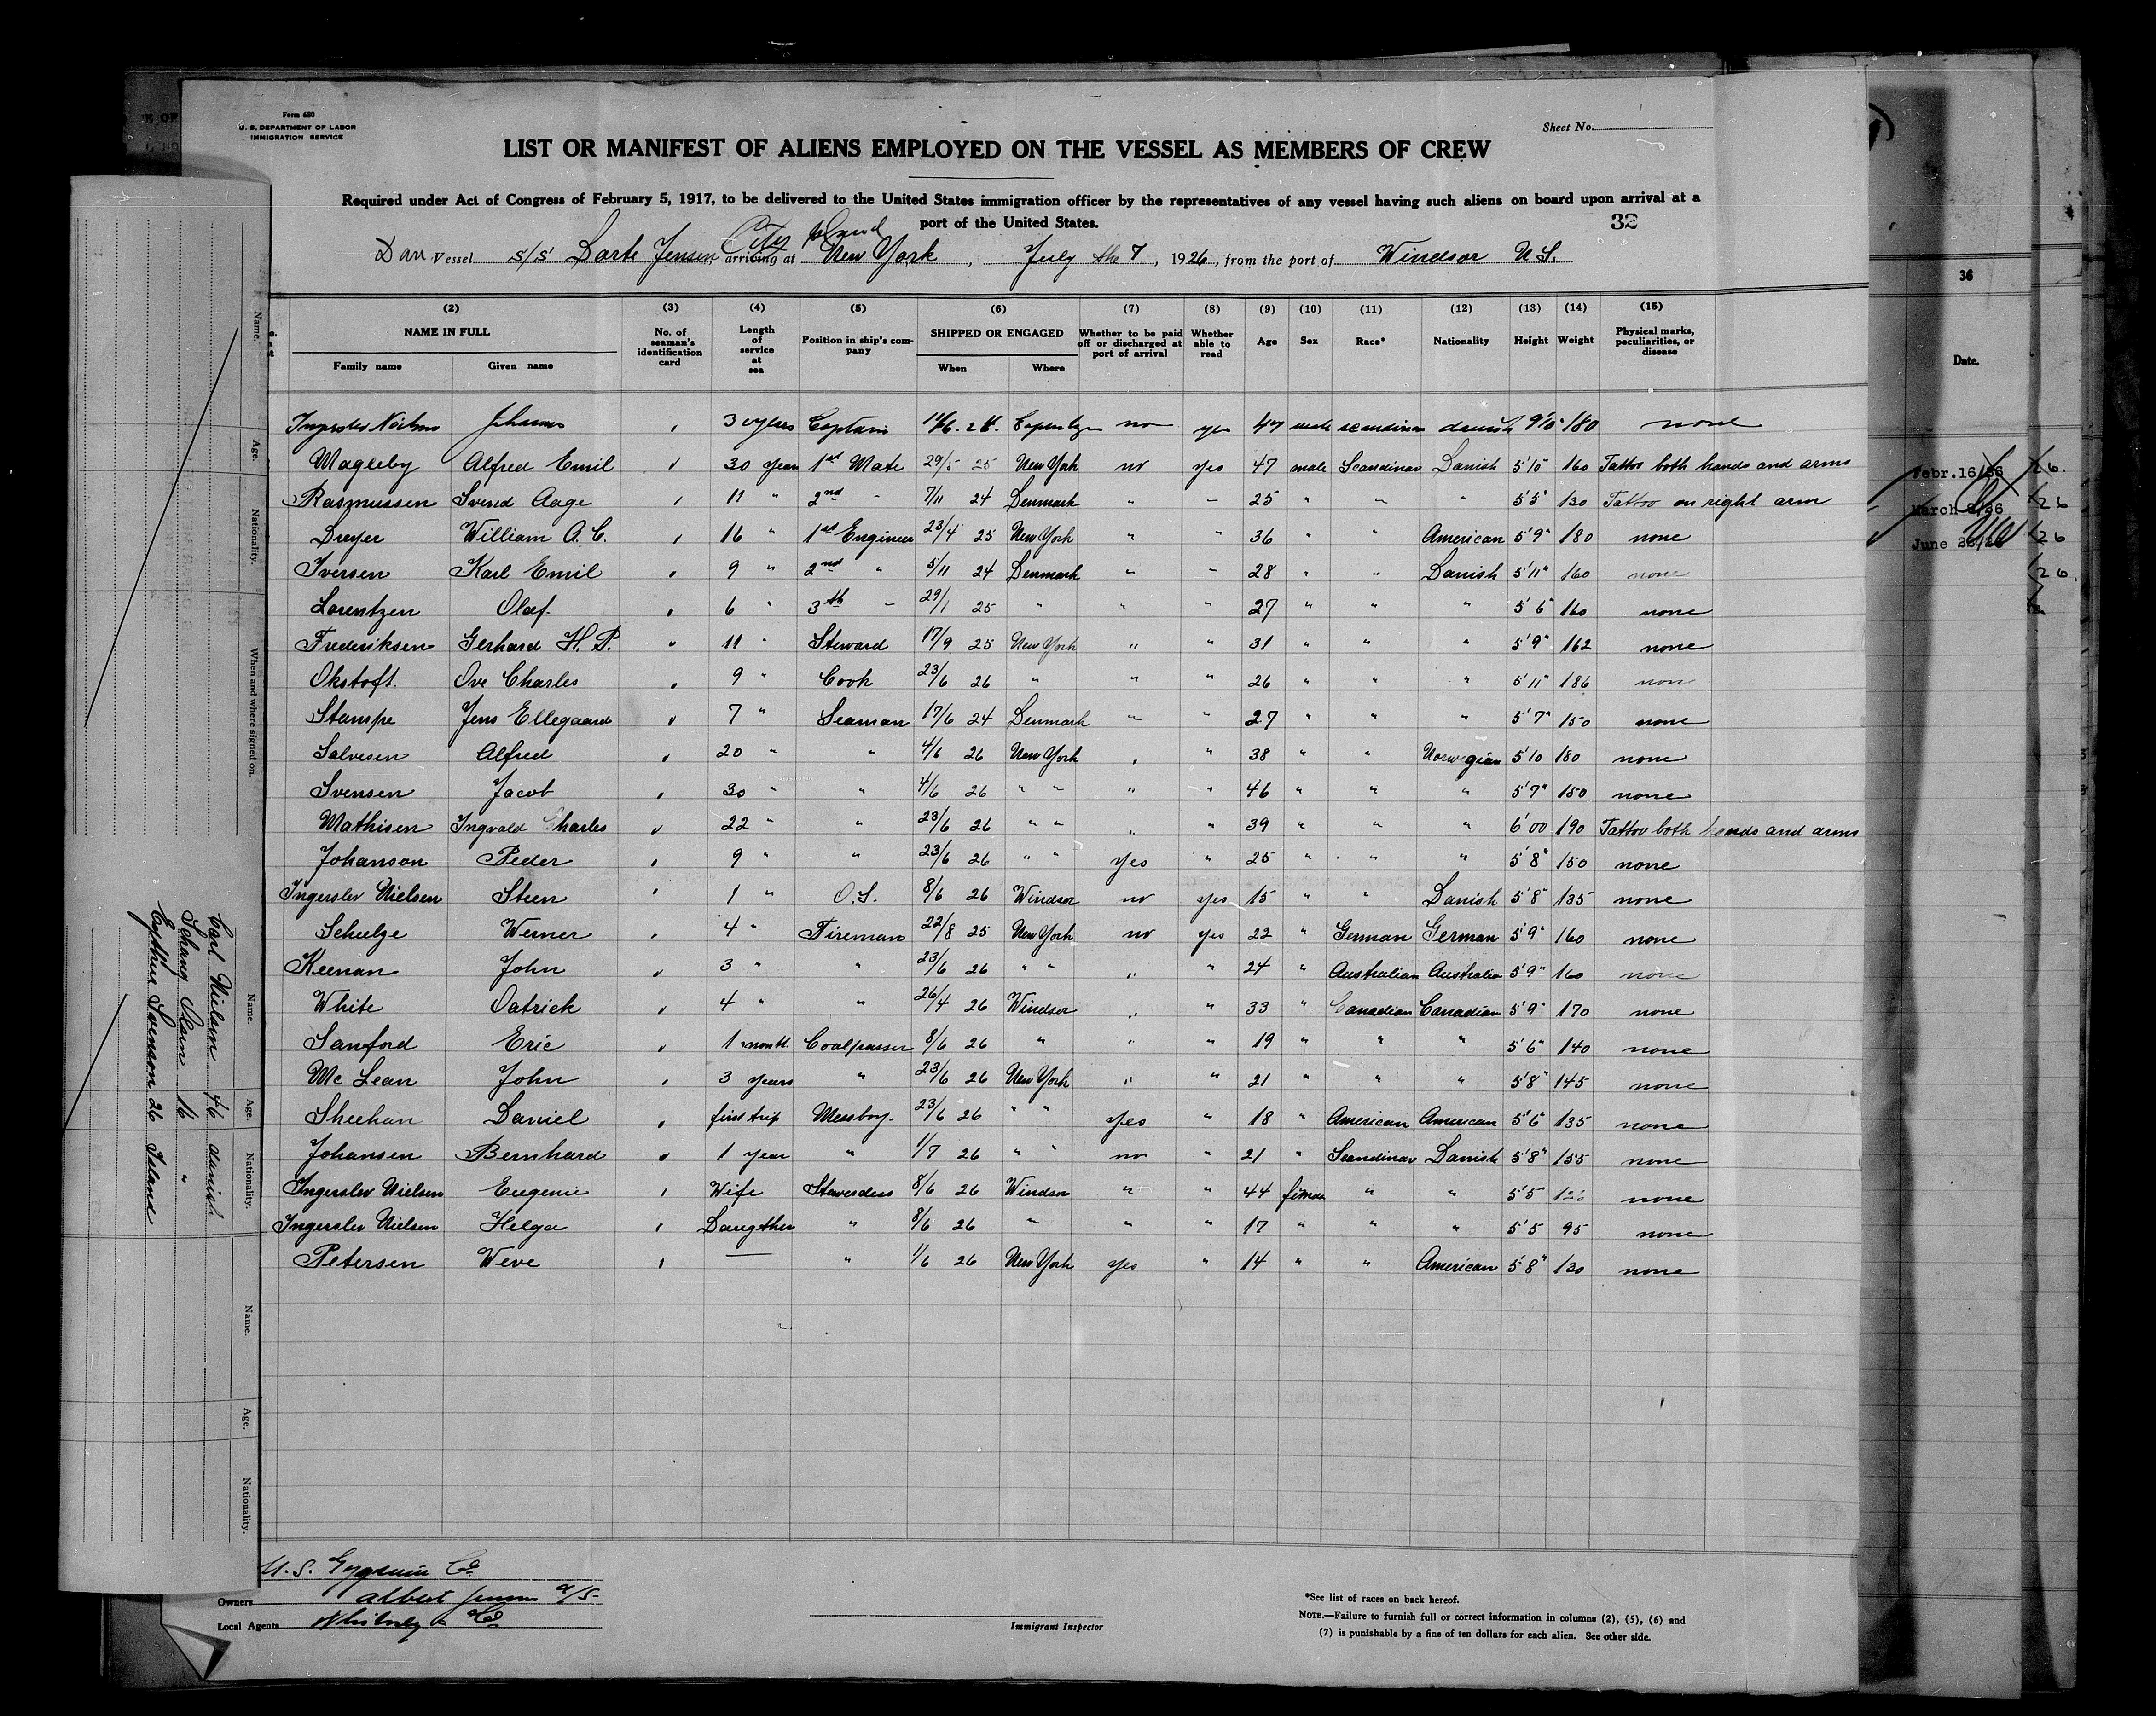 Form 680
U. S. DEPARTMENT OF LABOR
IMMIGRATION SERVICE
Sheet No.
LIST OR MANIFEST OF ALIENS EMPLOYED ON THE VESSEL AS MEMBERS OF CREW
Required under Act of Congress of February 5, 1917, to be delivered to the United States immigration officer by the representatives of any vessel having such aliens on board upon arrival at a
port of the United States.
32
City Island
Dan Vessel S/S Dorte Jensen arriving at New York, July the 7, 1926, from the port of Windsor
(2) (3) (4) (5) (6) (7) (8) (9) (10) (11) (12) (13) (14) (15)
NAME IN FULL
Family name Given name
No. of seaman's identification card
Length of service at sea
Position in ship's company
SHIPPED OR ENGAGED
When Where
Whether to be paid off or discharged at port of arrival
Whether able to read
Age
Sex
Race*
Nationality
Height
Weight
Physical marks, peculiarities, or disease
Captain no yes 47 male danish 180 none
Magleby Alfred Emil 30 years 1st Mate 29/5 25 New York no yes 47 male Scandinav Danish 5'5" 160 Tattoo both hands and arms
Rasmussen Svend Aage 11 " 2nd " 7/11 24 Denmark " " 25 " " " 5'5" 130 Tattoo on right arm
Dreyer William A. C. 16 " 1st Engineer 23/4 25 New York " " 36 " " American 5'9" 180 none
Iversen Karl Emil 9 " 2nd " 5/11 24 Denmark " " 28 " " Danish 5'11" 160 none
Lorentzen Olaf. 6 " 3th " 29/1 25 " " " 27 " " " 5'6" 160 none
Frederiksen Gerhard H. P. 11 " Steward 17/9 25 New York " " 31 " " " 5'9" 162 none
Okstoft. Ove Charles 9 " Cook 23/6 26 " " " 26 " " " 5'11" 186 none
Stampe Jens Ellegaard 7 " Seaman 17/6 24 Denmark " " 27 " " " 5'7" 150 none
Salvesen Alfred 20 " " 4/6 26 New York " " 38 " " Norwegian 5'10 180 none
Svensen Jacob 30 " " 4/6 26 " " " " 46 " " " 5'7" 150 none
Mathisen Ingvald Charles 22 " " 23/6 26 " " " " 39 " " " 6'00 190 Tattoo both hands and arms
Johanson Peder 9 " " 23/6 26 " " yes " 25 " " " 5'8" 150 none
Ingerslev Nielsen Steen 1 " O.S. 8/6 26 Windsor no yes 15 " " Danish 5'8" 135 none
Schulze Werner 4 " Fireman 22/8 25 New York no yes 22 " German German 5'9" 160 none
Keenan John 3 " " 23/6 26 " " " " 24 " Australian Australia 5'9" 160 none
White Patrick 4 " " 26/4 26 Windsor " " 33 " Canadian Canadian 5'9" 170 none
Sanford Eric 1 month Coalpasser 8/6 26 " " " 19 " " " 5'6" 140 none
Mc Lean John 3 years " 23/6 26 New York " " 21 " " " 5'8" 145 none
Sheehan Daniel first trip Messboy. 23/6 26 " " yes " 18 " American American 5'6" 135 none
Johansen Bernhard 1 year " 1/7 26 " " no " 21 " Scandinav Danish 5'8" 155 none
Ingerslev Nielsen Eugenie Wife Stewerdess 8/6 26 Windsor " " 44 " " 5'5 none
Ingerslev Nielsen Helga Daugther " 8/6 26 " " " 17 " " " 5'5 95 none
Petersen Weve — " 1/6 26 New York yes " 14 " " American 5'8" 130 none
U.S. Gypsum Co.
Owners Albert Jensen A/S
Local Agents Whitney & Co
Immigrant Inspector
*See list of races on back hereof.
NOTE.—Failure to furnish full or correct information in columns (2), (5), (6) and
(7) is punishable by a fine of ten dollars for each alien. See other side.
Name. Age. Nationality. When and where signed on.
Name. Age. Nationality.
Carl Nielsen 46 danish
16 "
Svenson 26
Name. Age. Nationality.
36
Date.
Febr.16/26
March
June